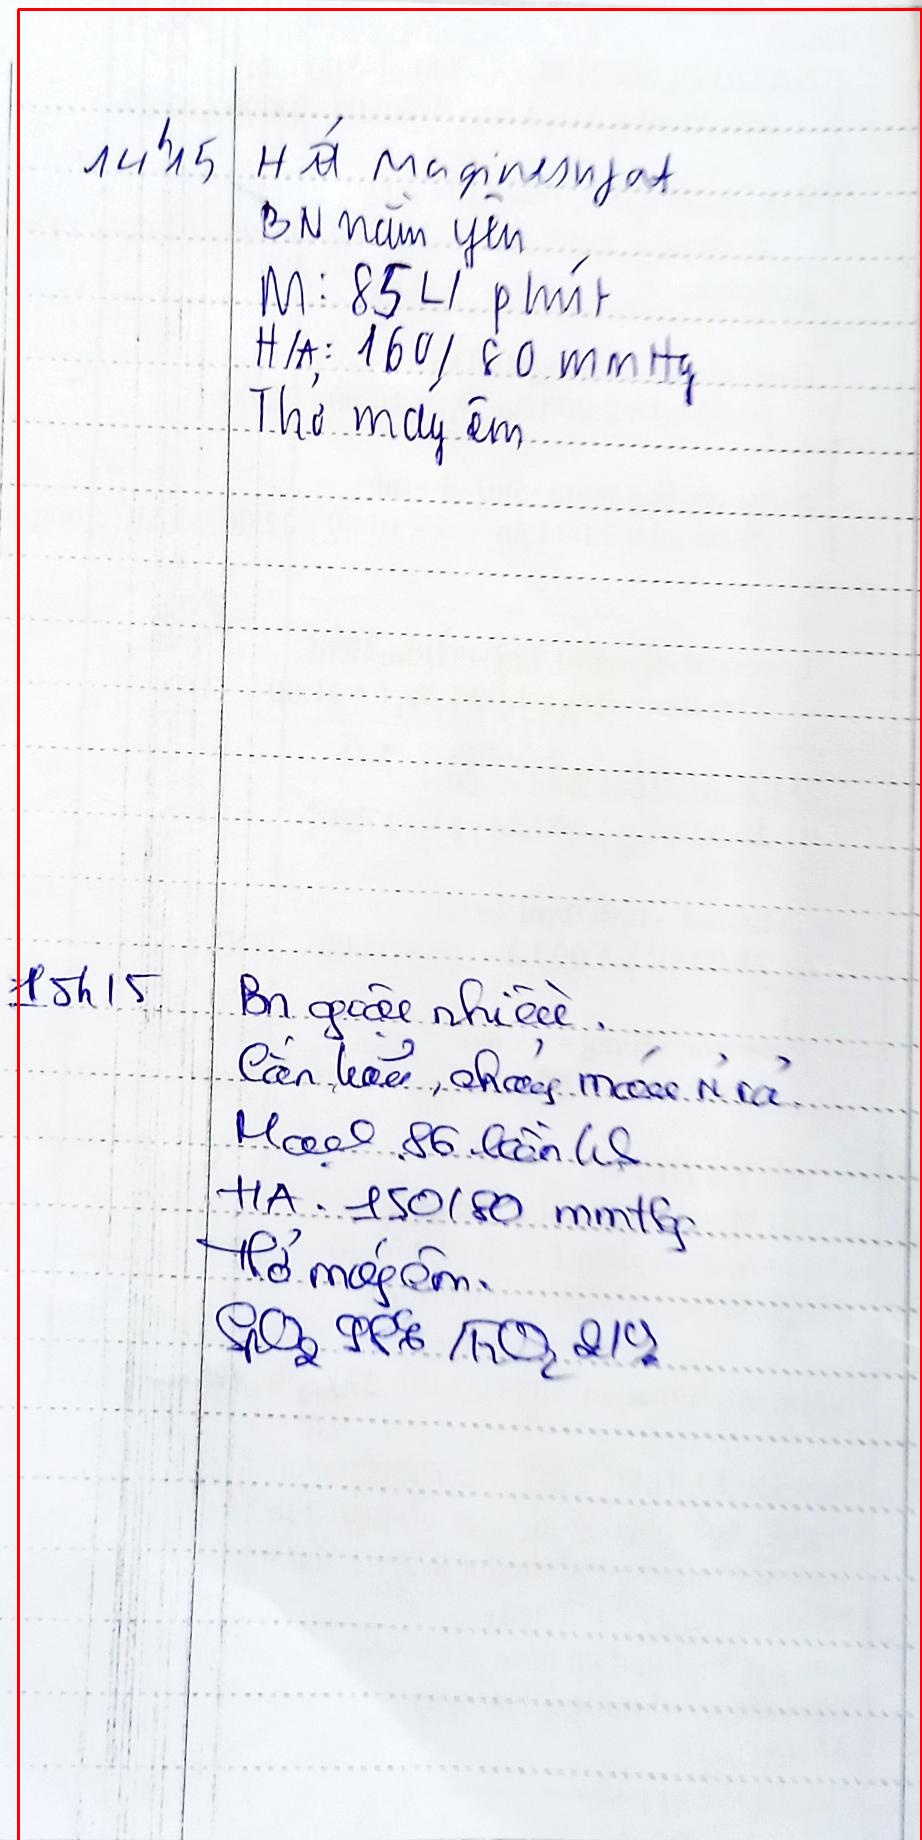 14h15 Hết Maginesunfat
BN nằm yên
M: 85 L/ phút
H/A: 160/ 80 mmHg
Thở máy êm
15h15 Bn quậy nhiều.
Cắn, máu rỉ rả.
Mạch 86 lần/
HA. 150/80 mmHg
Thở máy êm.
SpO2 99% /FiO2